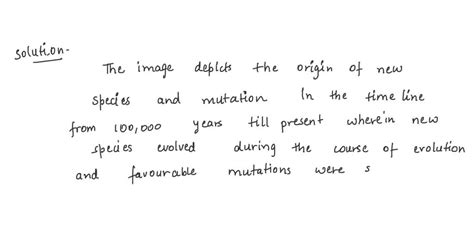 Solution-
The image depicts the origin of new
species and mutation in the time line
from 100,000 years till present wherein new
species evolved during the course of evolution
and favourable mutations were s